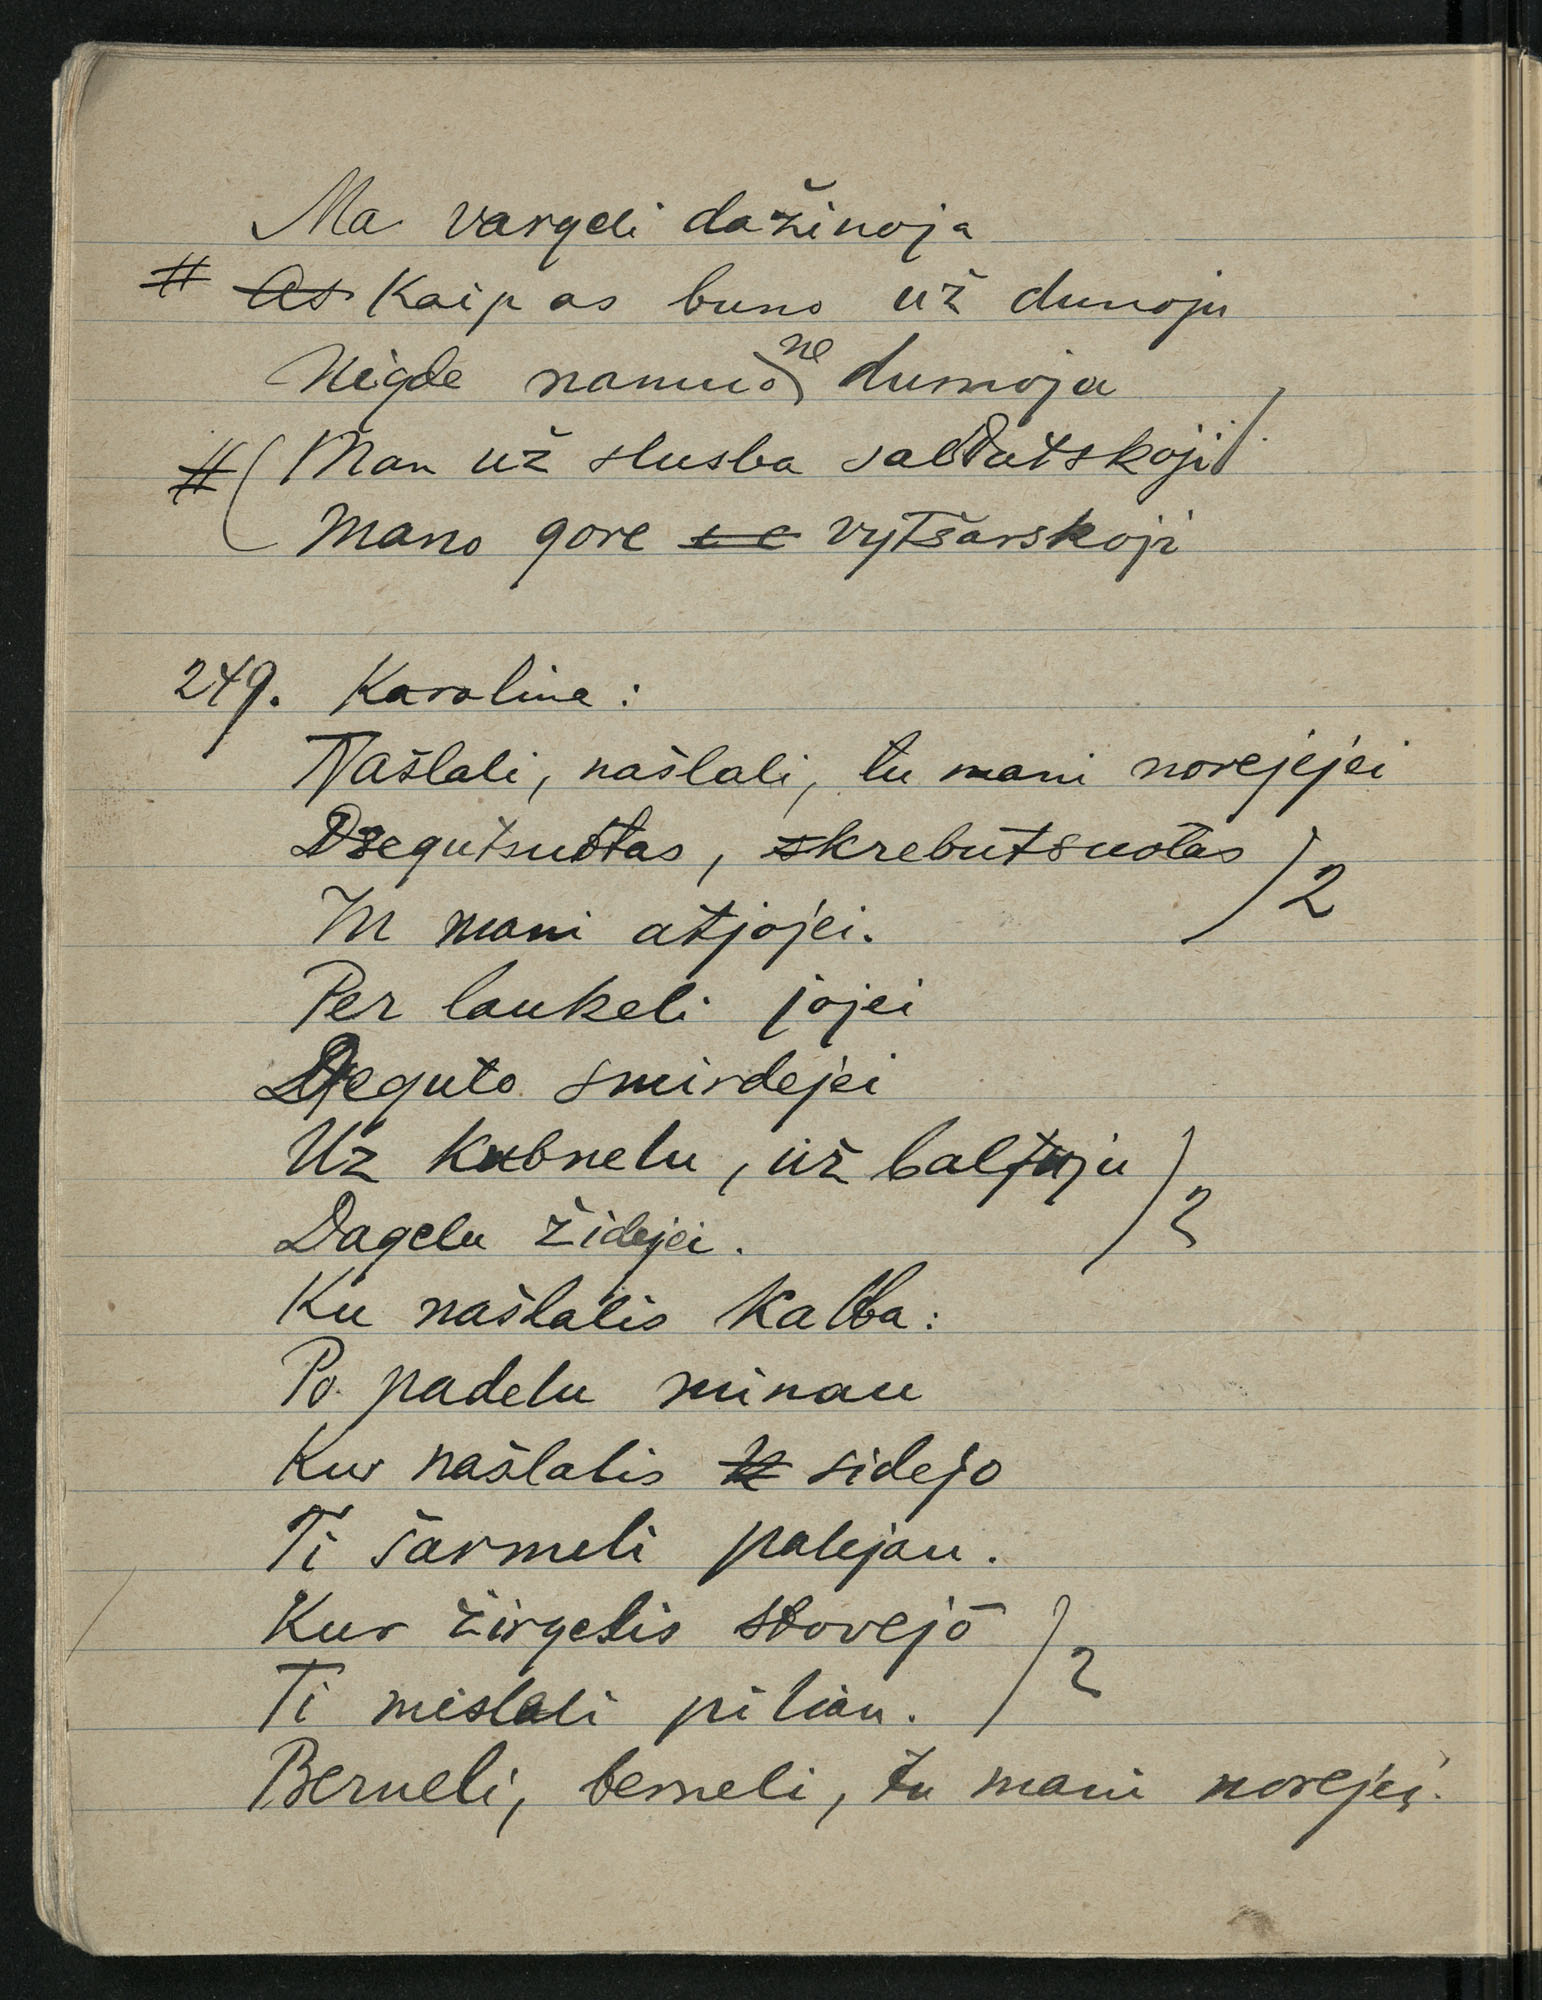 Ma vargeli dažinoja
# As Kaip as buno už dunoju
Nigde namuo ne dumoja
# (Man už slusba saldatskoji)
Mano gore vytšarskoji
249. Karoline:
Našlali, našlali, tu mani norejejei
Dzegutsuotas, skrebutsuotas )2
In mani atjojei.
Per laukeli jojei
Dzeguto smirdejei
Uz kubnelu, už baltuju )2
Dagelu židejei.
Ku našlalis kalba:
Po padelu minau
Kur našlalis sidejo
Ti šarmeli palejau.
Kur žirgelis stovejo )2
Ti mislali piliau.
Berneli, berneli, tu mani norejei.